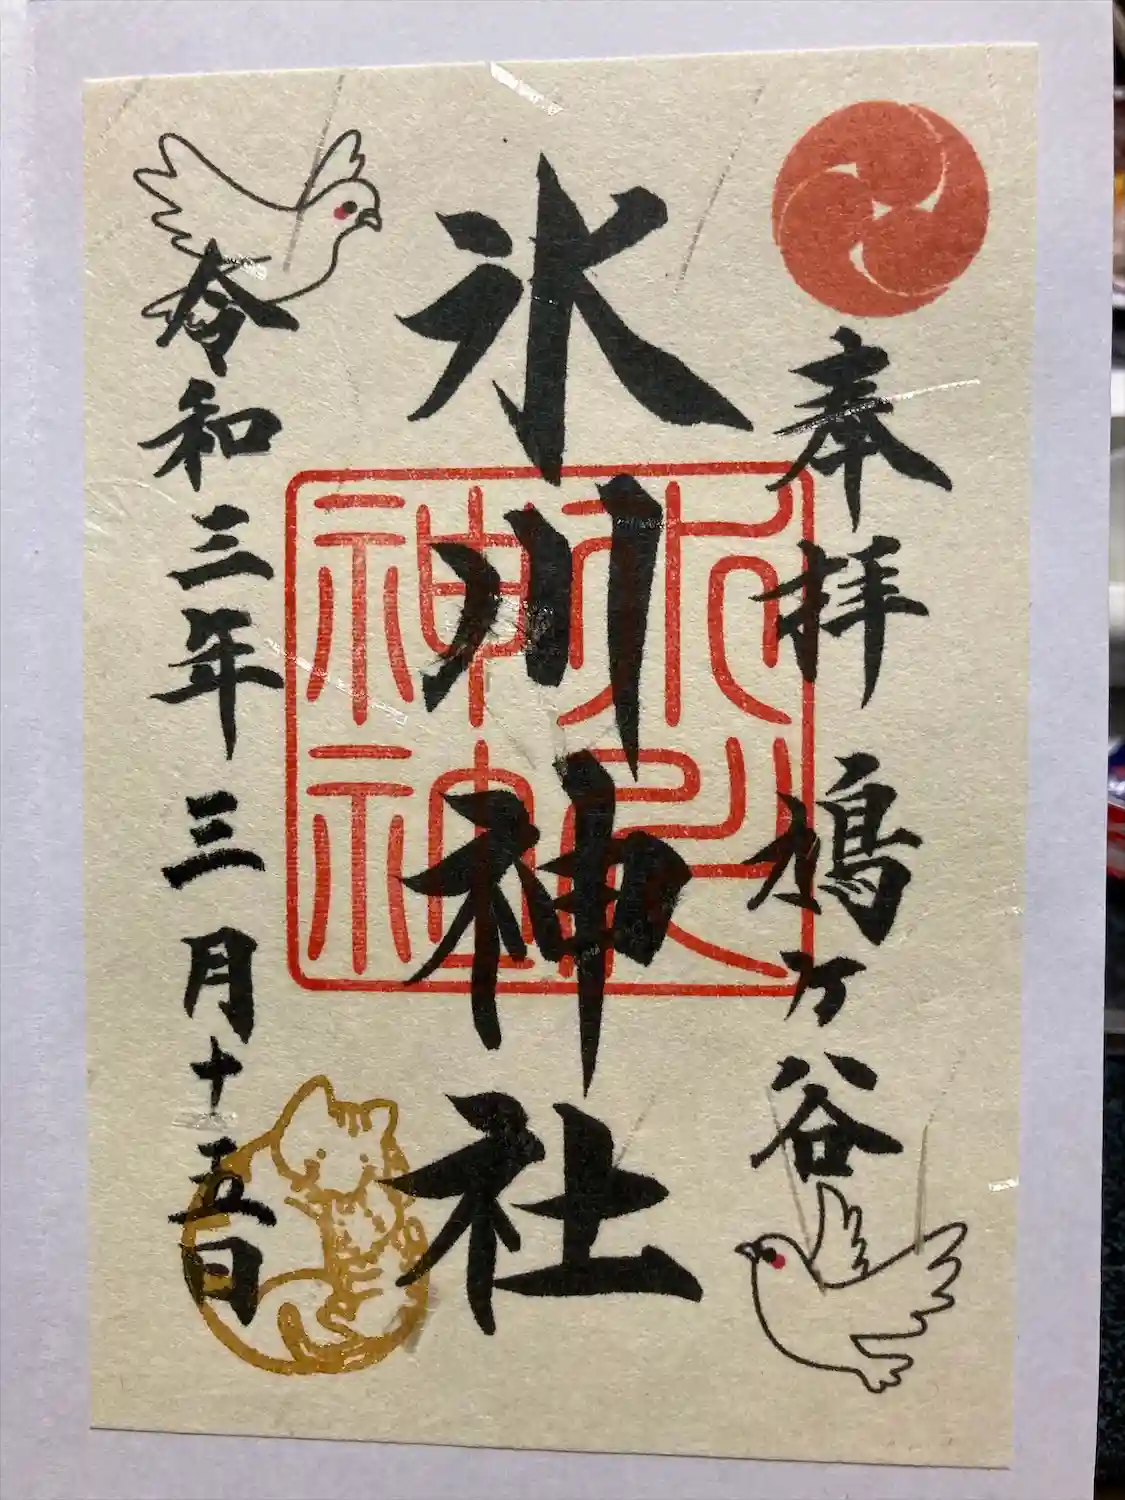 奉拝 鳩ヶ谷
氷川神社
氷川神社
令和三年三月十五日